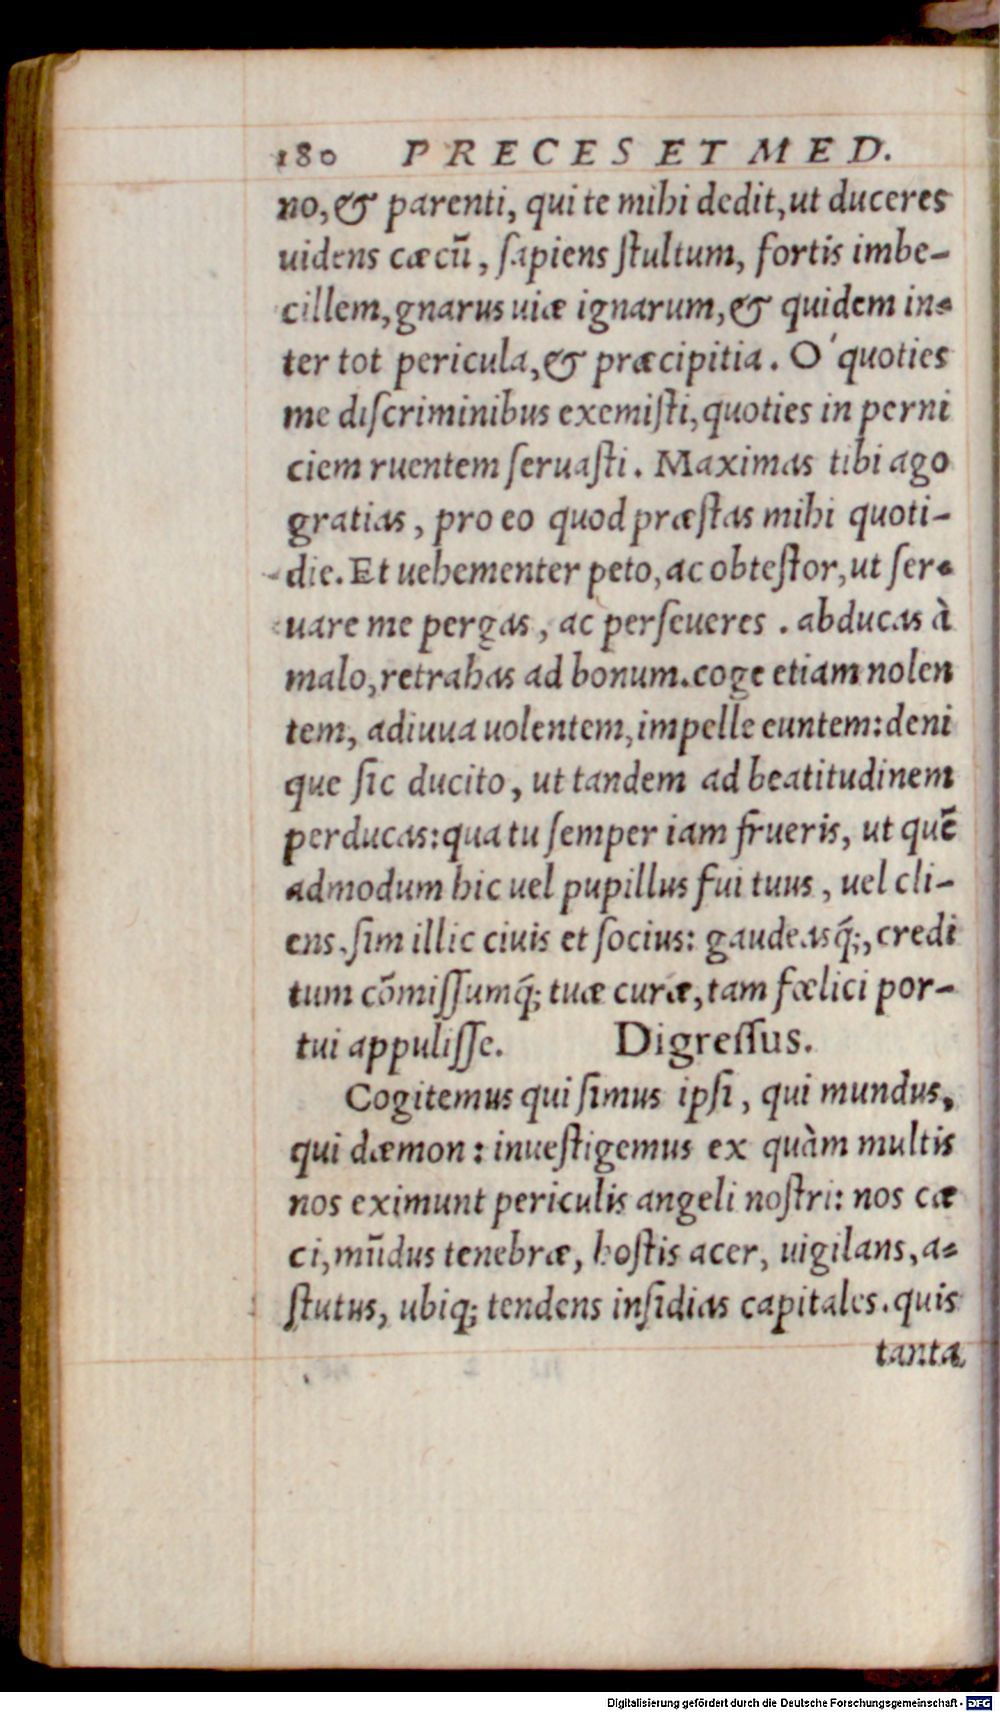 180 PRECES ET MED.
no, & parenti, qui te mihi dedit, ut duceres
uidens cæcū, ſapiens ſtultum, fortis imbe-
cillem, gnarus uiæ ignarum, & quidem in-
ter tot pericula, & præcipitia. O' quoties
me diſcriminibus exemiſti, quoties in perni
ciem ruentem ſeruaſti. Maximas tibi ago
gratias, pro eo quod præſtas mihi quoti-
die. Et uehementer peto, ac obteſtor, ut ſer-
uare me pergas, ac perſeueres. abducas à
malo, retrahas ad bonum. coge etiam nolen
tem, adiuua uolentem, impelle euntem: deni
que ſic ducito, ut tandem ad beatitudinem
perducas: qua tu ſemper iam frueris, ut quē
admodum hic uel pupillus fui tuus, uel cli-
ens. ſim illic ciuis et ſocius: gaudeasq̃;, credi
tum cōmiſſumq̃; tuæ curæ, tam fœlici por-
tui appuliſſe. Digreſſus.
Cogitemus qui ſimus ipſi, qui mundus,
qui dæmon: inueſtigemus ex quàm multis
nos eximunt periculis angeli noſtri: nos cæ
ci, mūdus tenebræ, hoſtis acer, uigilans, a-
ſtutus, ubiq; tendens inſidias capitales. quis
tanta
Digitalisierung gefördert durch die Deutsche Forschungsgemeinschaft - DFG